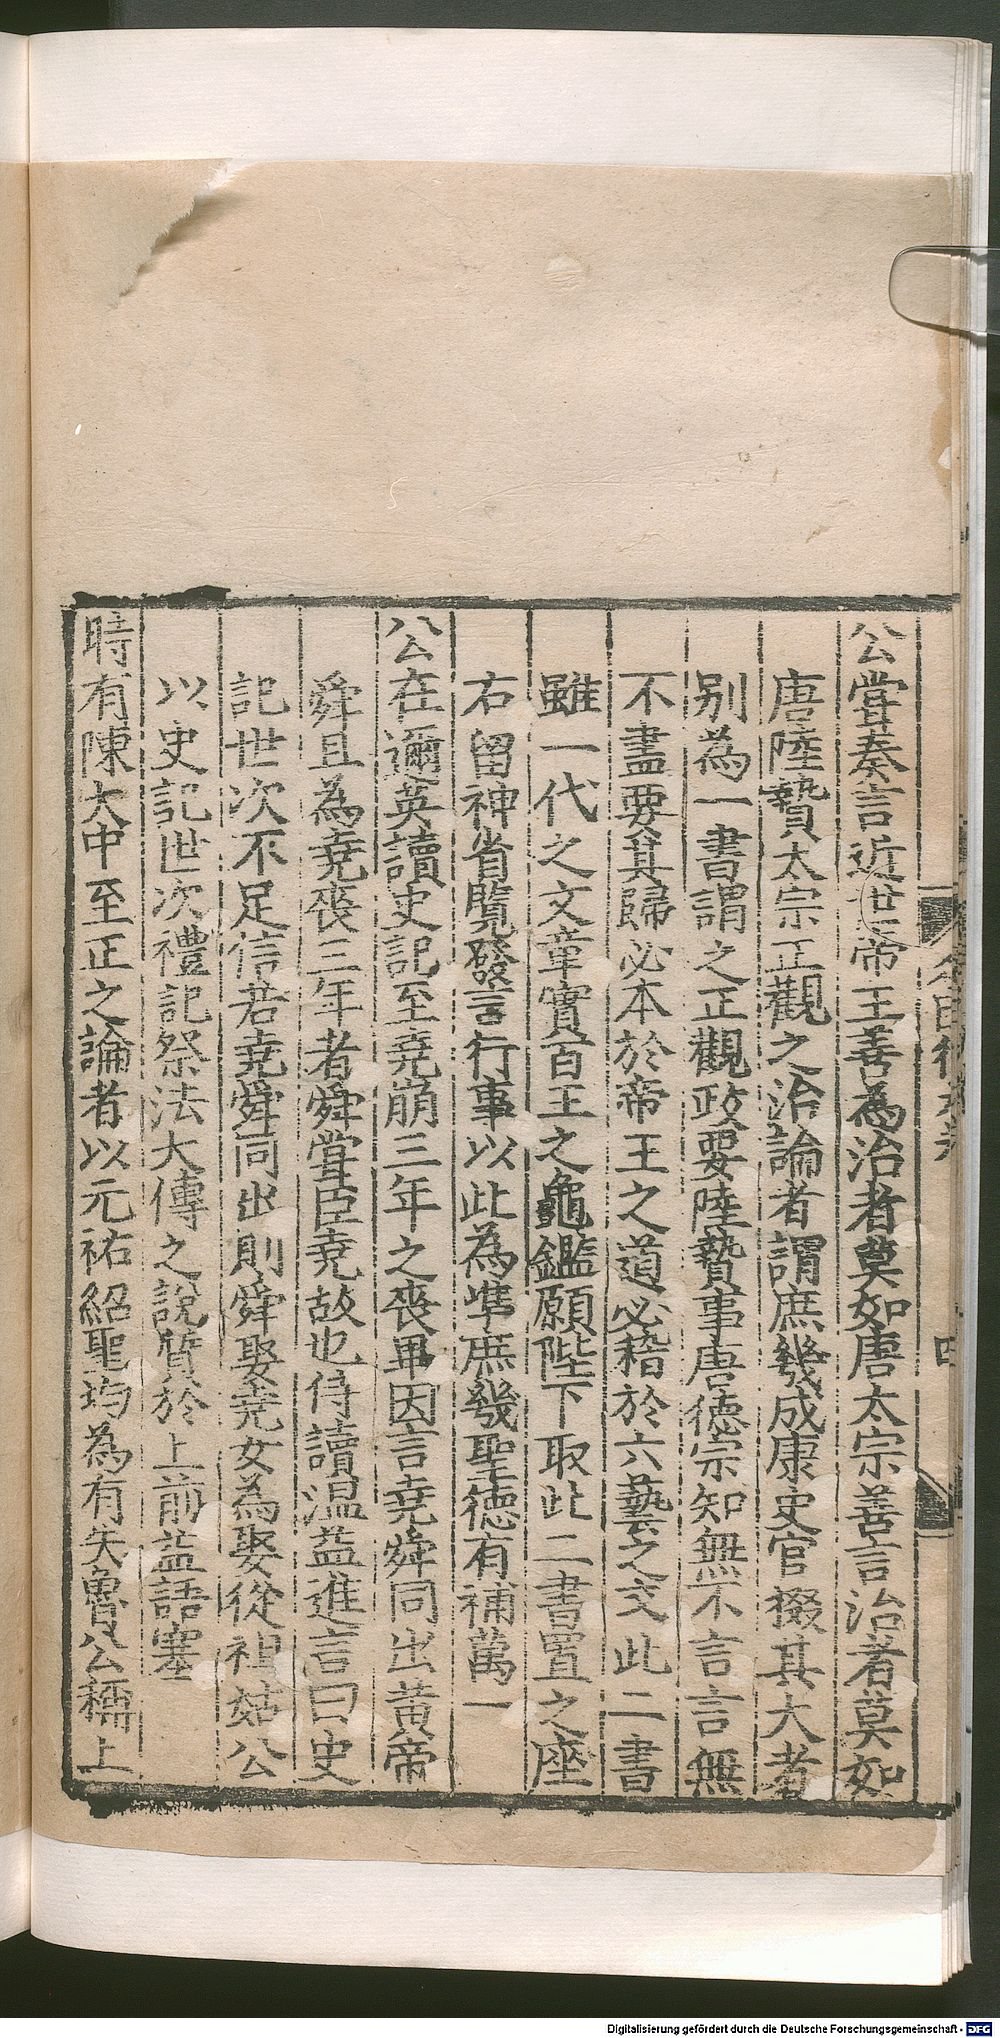 公嘗奏言近世帝王善為治者莫如唐太宗善言治者莫如
唐陸贄太宗正觀之治論者謂庶幾成康史官掇其大者
別為一書謂之正觀政要陸贄事唐德宗知無不言言無
不盡要其歸必本於帝王之道必稽於六藝之文此二書
雖一代之文章實百王之龜鑑願陛下取此二書置之座
右留神省覽發言行事以此為準庶幾聖德有補萬一
公在邇英讀史記至堯崩三年之喪畢因言堯舜同出黃帝
舜且為堯喪三年者舜嘗臣堯故也侍讀溫益進言曰史
記世次不足信若堯舜同出則舜娶堯女為娶從祖姑公
以史記世次禮記祭法大傳之說質於上前益語塞
時有陳大中至正之論者以元祐紹聖均為有失魯公稱上
Digitalisierung gefördert durch die Deutsche Forschungsgemeinschaft - DFG